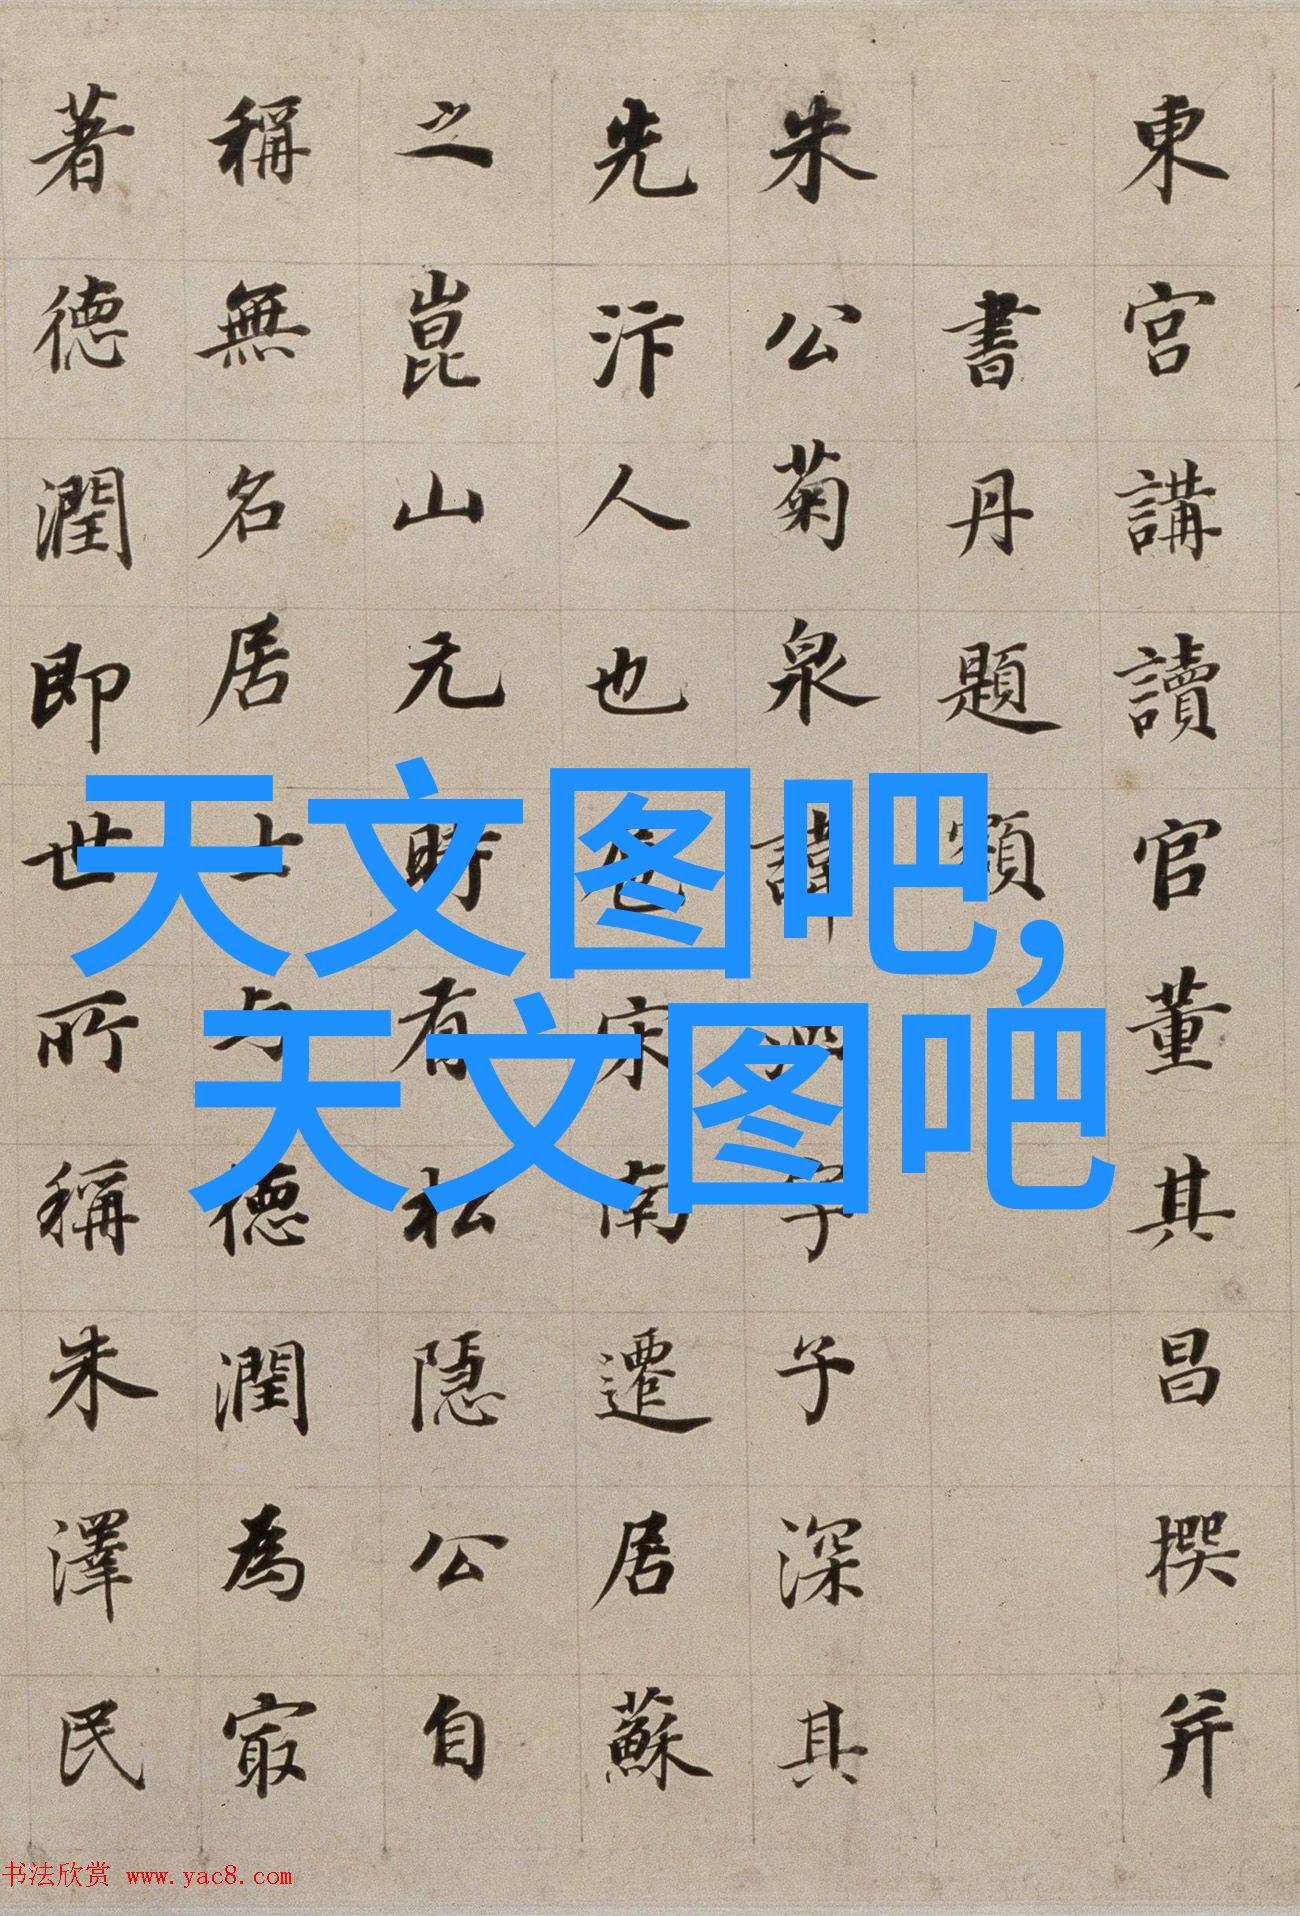 東宮講讀官董其昌撰并
書丹題額
朱公菊泉諱字子深其
先汴人也宋南遷居蘇
之崑山元時有松隱公自
稱無名居士与德潤為最
著德潤即世所稱朱澤民
天文图吧,
天文图吧
书法欣赏 www.yac8.com